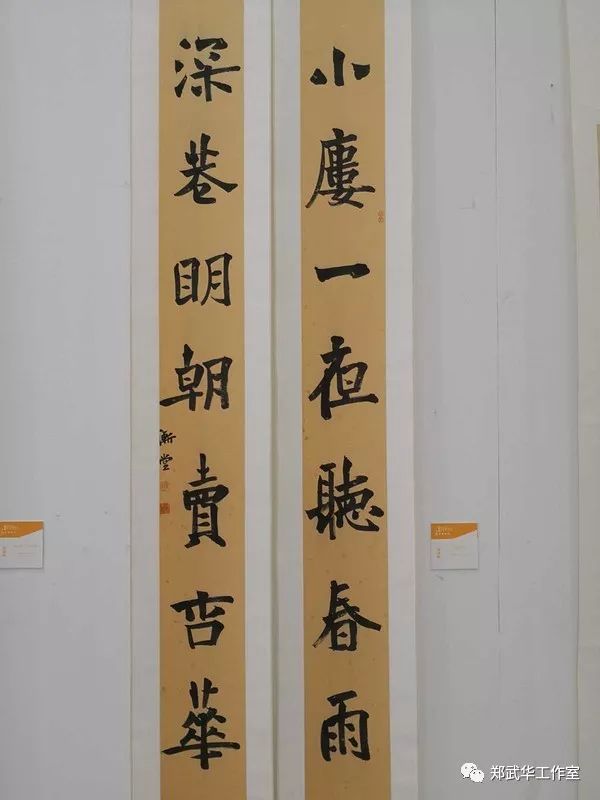 小廔一夜聽春雨
深巷明朝賣杏華
郑武华工作室